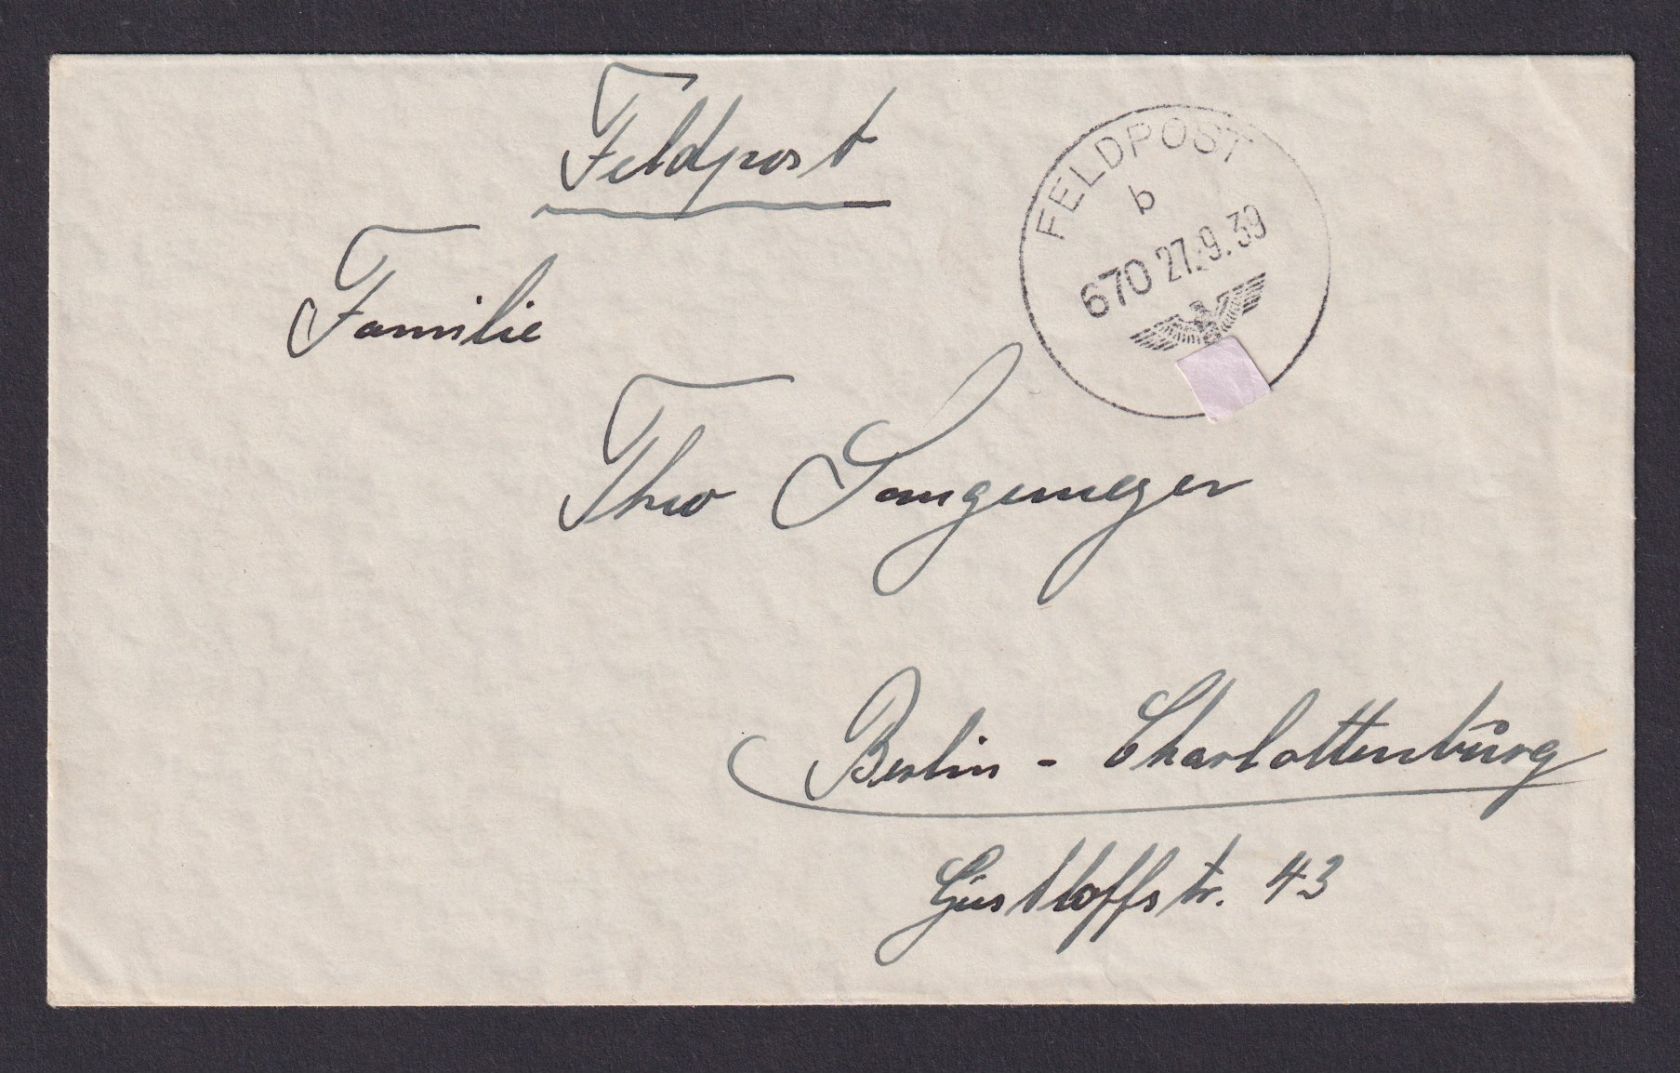 Feldpost
FELDPOST
b
670 27.9.39
Familie
Theo Langemeyer
Berlin - Charlottenburg
Gustloffstr. 43